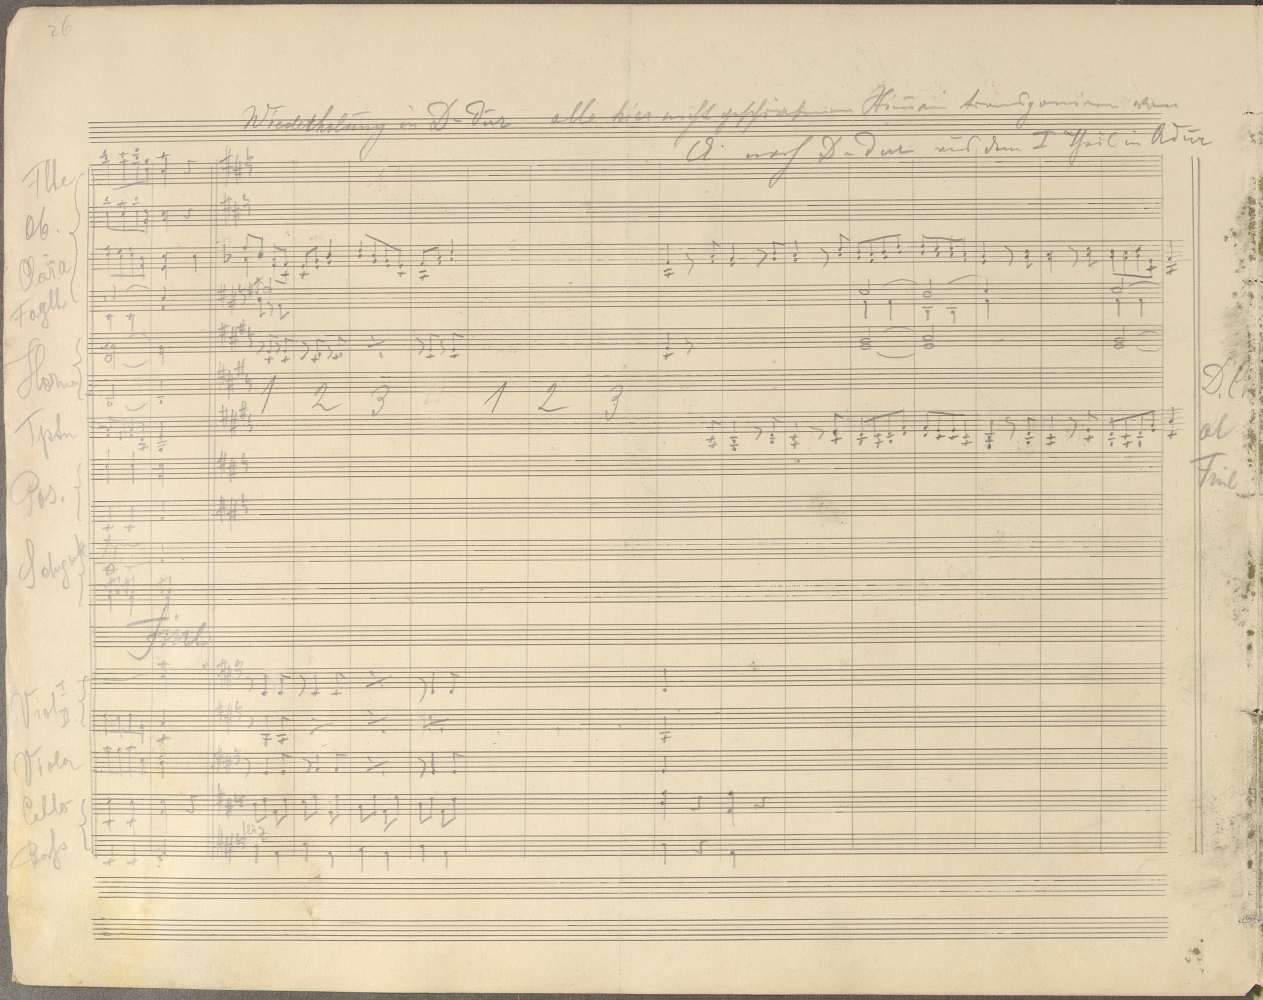 26
Wiederholung in D-Dur alle hier nicht geschriebenen Stimmen transponieren
nach D-Dur aus dem I Theil in Adur
Flte
Ob.
Clari
Fagtt
Horner
1 2 3 1 2 3
Tptn
Pos.
D.C.
al
Fine
Fine
Viol I
II
Viola
Cello
Bass